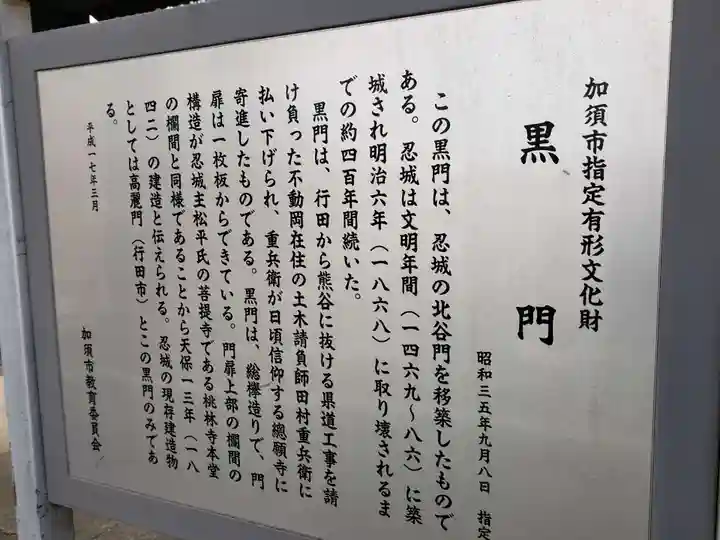 加須市指定有形文化財
黒門
昭和三五年九月八日 指定
この黒門は、忍城の北谷門を移築したもので
ある。忍城は文明年間（一四六九～八六）に築
城され明治六年（一八六八）に取り壊されるま
での約四百年間続いた。
黒門は、行田から熊谷に抜ける県道工事を請
け負った不動岡在住の土木請負師田村重兵衛に
払い下げられ、重兵衛が日頃信仰する總願寺に
寄進したものである。黒門は、総欅造りで、門
扉は一枚板からできている。門扉上部の欄間の
構造が忍城主松平氏の菩提寺である桃林寺本堂
の欄間と同様であることから天保一三年（一八
四二）の建造と伝えられる。忍城の現存建造物
としては高麗門（行田市）とこの黒門のみであ
る。
平成一七年三月
加須市教育委員会